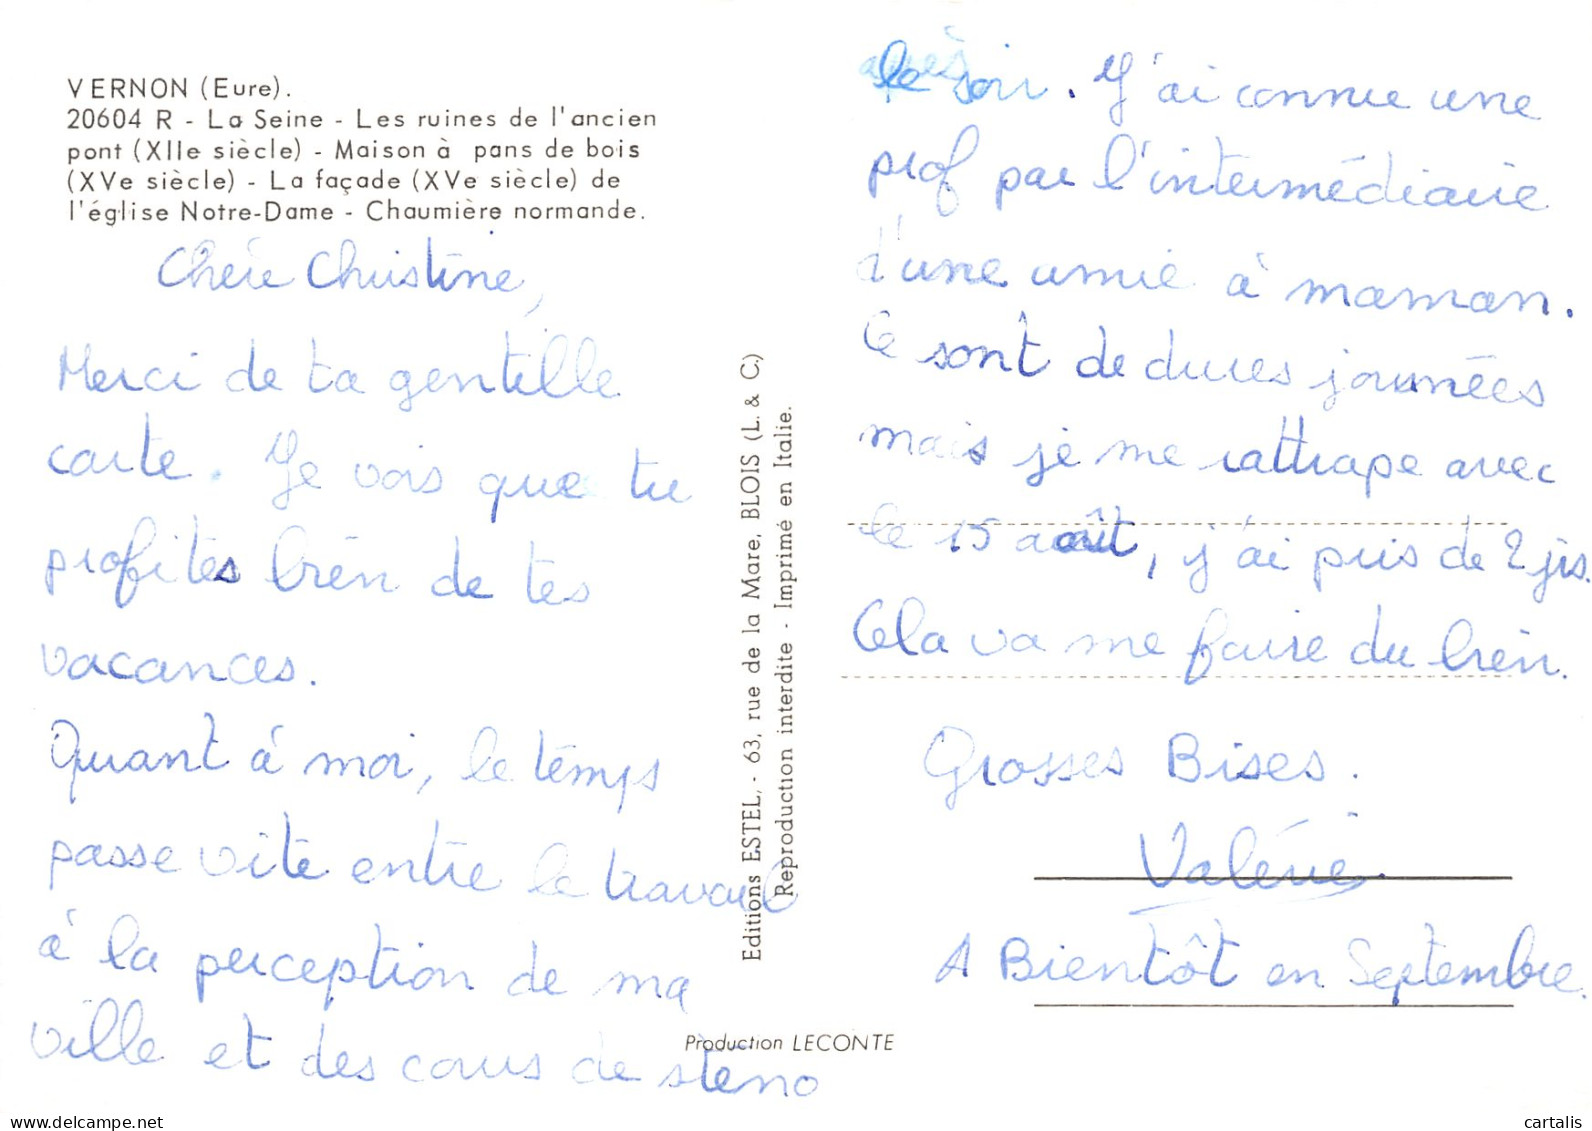 VERNON (Eure).
20604 R - La Seine - Les ruines de l'ancien
pont (XIIe siècle) - Maison à pans de bois
(XVe siècle) - La façade (XVe siècle) de
l'église Notre-Dame - Chaumière normande.
Chère Christine,
Merci de ta gentille
carte. Je vois que tu
profites bien de tes
vacances.
Quant à moi, le temps
passe vite entre le travail
à la perception de ma
ville et des cours de sténo
Editions ESTEL, - 63, rue de la Mare, BLOIS (L. & C.)
Reproduction interdite - Imprimé en Italie.
Production LECONTE
le soir. J'ai connue une
prof par l'intermédiaire
d'une amie à maman.
Ce sont de dures journées
mais je me rattrape avec
le 15 août, j'ai pris de 2 jrs.
Cela va me faire du bien.
Grosses Bises.
Valérie
A Bientôt en Septembre.
cartalis